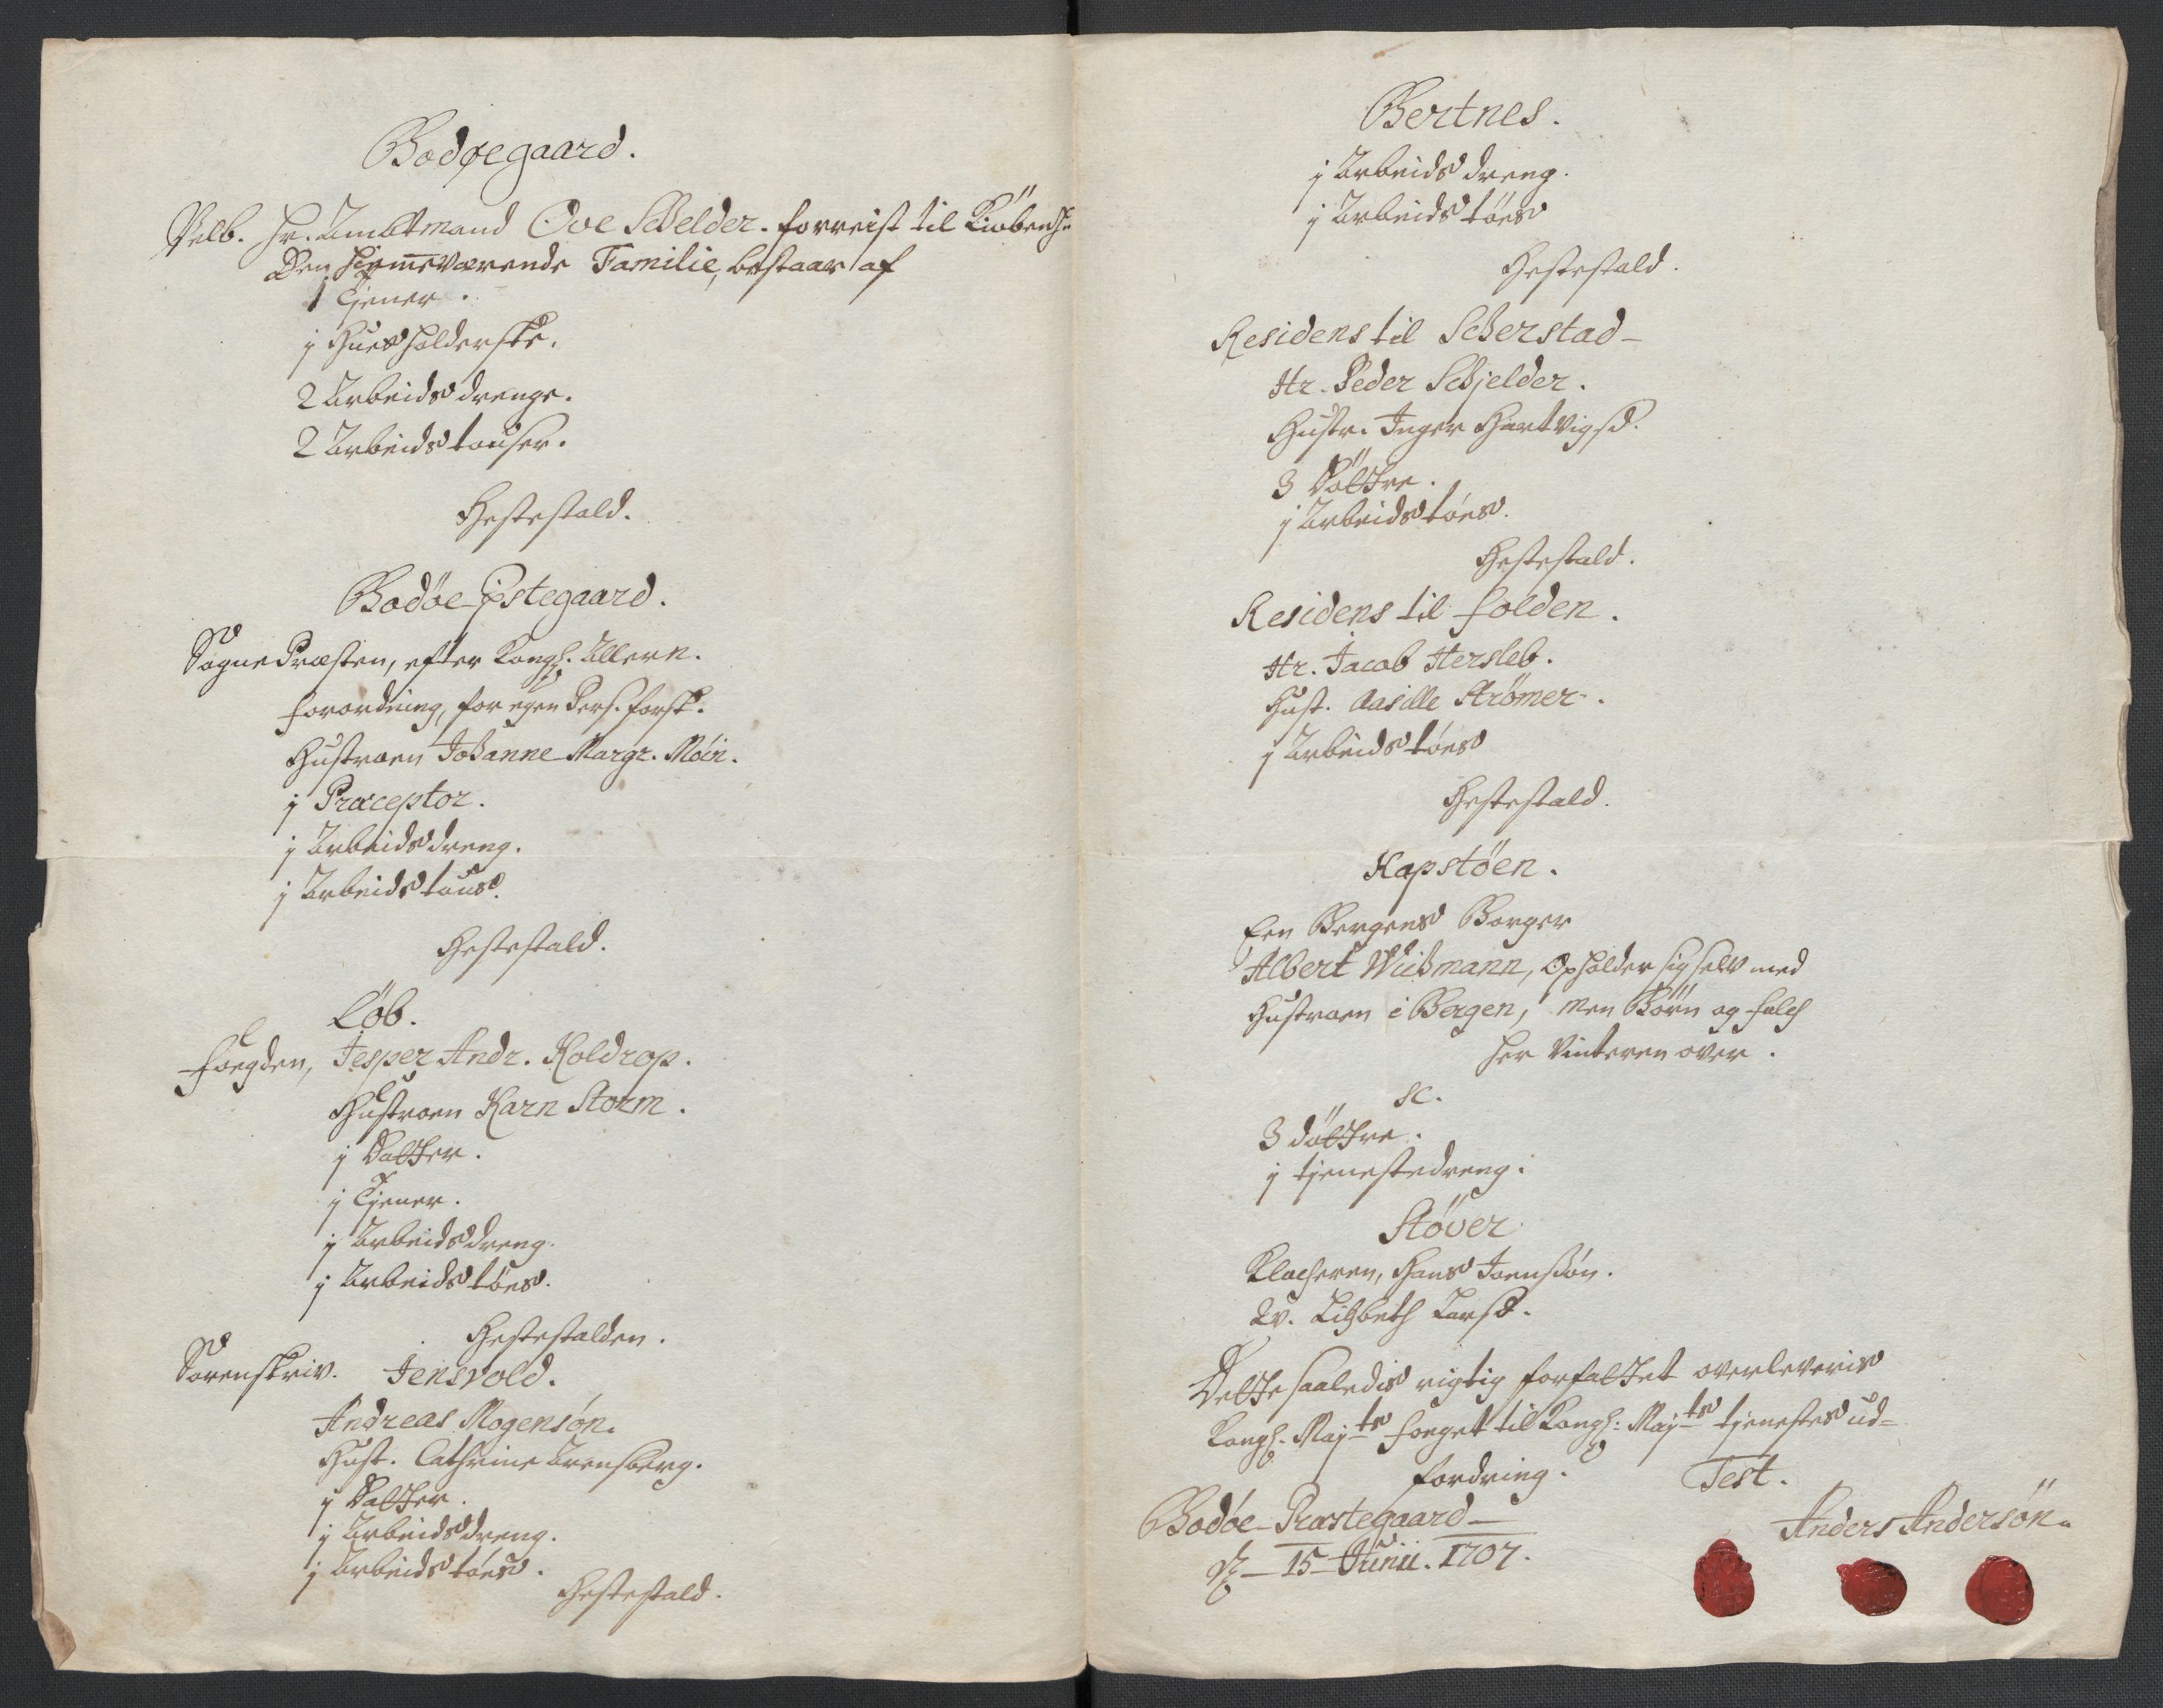 Bodøegaard.
Velb. Hr. Ambtmand Ove Schelder. forreist til Kiøbenh:
Den hiemeværende Familie, bestaar af
1 Tjener.
j Huusholderske.
2 Arbeids drenge.
2 Arbeids touser.
Hestestald.
Bodøe Pstegaard.
Sogne Præsten, efter Kongl. Allern.
forordning, for egen Pers. forsk.
Hustroen Johanne Margr. Moin.
j Præceptor.
j Arbeidsdreng.
j Arbeids tøus.
Hestestald.
Løb.
Foegden, Jesper Andr. Holdrop.
Hustroen Karn Storm.
j Datter.
j Tjener.
j Arbeidsdreng.
j Arbeids tøes.
Hestestalden.
Sorenskriv. Jensvold.
Andreas Mogensøn.
Hust. Cathrine Arensberg.
j Datter.
j Arbeidsdreng.
j Arbeids tøes.
Hestestald.
Bertnes.
j Arbeids dreng.
j Arbeids tøes
Hestestald.
Residens til Scherstad-
Hr. Peder Schjelder.
Hustr. Inger Hartvigsd.
3 Døttre.
j Arbeids tøes.
Hestestald.
Residens til folden.
Hr. Jacob Hersleb.
Hust. Aasille Strømer.
j Arbeids tøes
Hestestald.
Hapstøen.
Een Bergens Borger
Albert Wichmann, Opholder sig selv med
Hustroen i Bergen, men Børn og folch
her Vinteren over.
sc.
3 døttre.
j tjenestedreng.
Støver
Klocheren, Hans Joensøn.
Qv. Lisbeth Larsd.
Dette saaledis rigtig forfattet overleveris
Kongl. Mayts Foeget til Kongl: Mayts tjenestes ud-
fordring. Test.
Bodøe-Præstegaard-
d. 15 Junii. 1707.
Anders Andersøn.